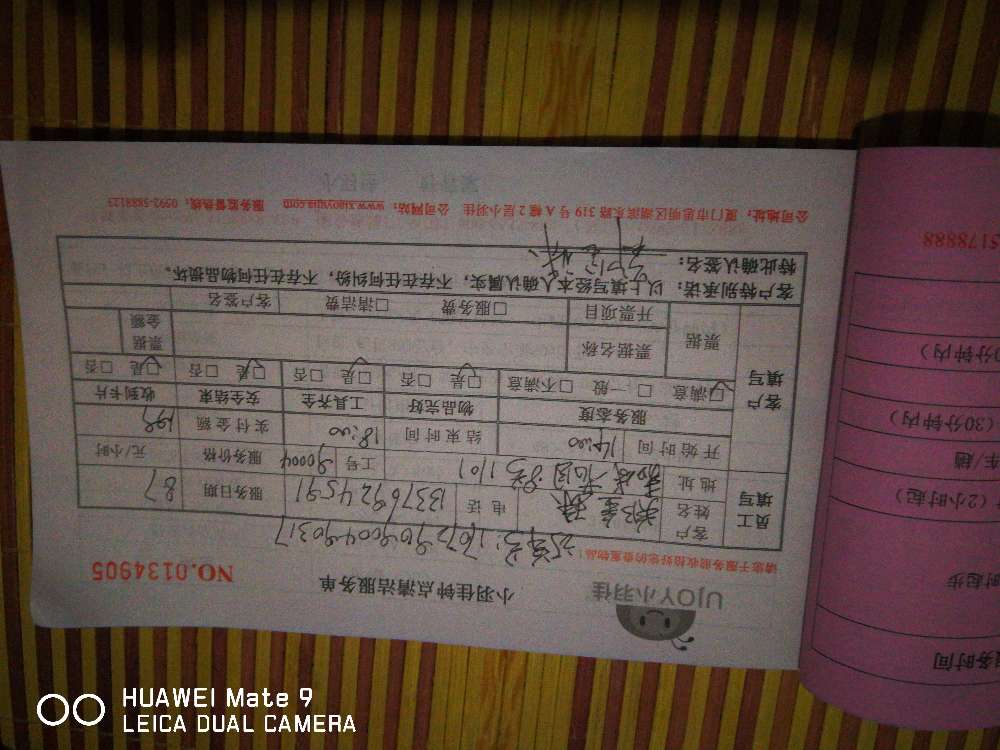 UJOY小羽佳
小羽佳钟点清洁服务单
NO.0134905
请您于服务前收拾好您的贵重物品!
员工填写
客户姓名
电话
13376924591
服务日期
8.7
地址
1101
工号
90004
服务价格
元/小时
开始时间
14:00
结束时间
18:00
实付金额
198
客户填写
服务态度
物品完好
工具齐全
安全结束
收到卡片
☑满意 □一般 □不满意
☑是 □否
☑是 □否
☑是 □否
☑是 □否
票据
票据名称
票据金额
开票项目
□服务费 □清洁费
客户签名
客户特别承诺: 以上填写经本人确认属实, 不存在任何纠纷, 不存在任何物品损坏。
特此确认签名:
公司地址: 厦门市思明区湖滨东路 319 号 A 幢 2 层小羽佳 公司网站: www.xiaoyujia.com 服务监督热线: 0592-5888123
5178888
0分钟内)
(30分钟内)
车/趟
(2小时起)
时起步
服务时间
HUAWEI Mate 9
LEICA DUAL CAMERA